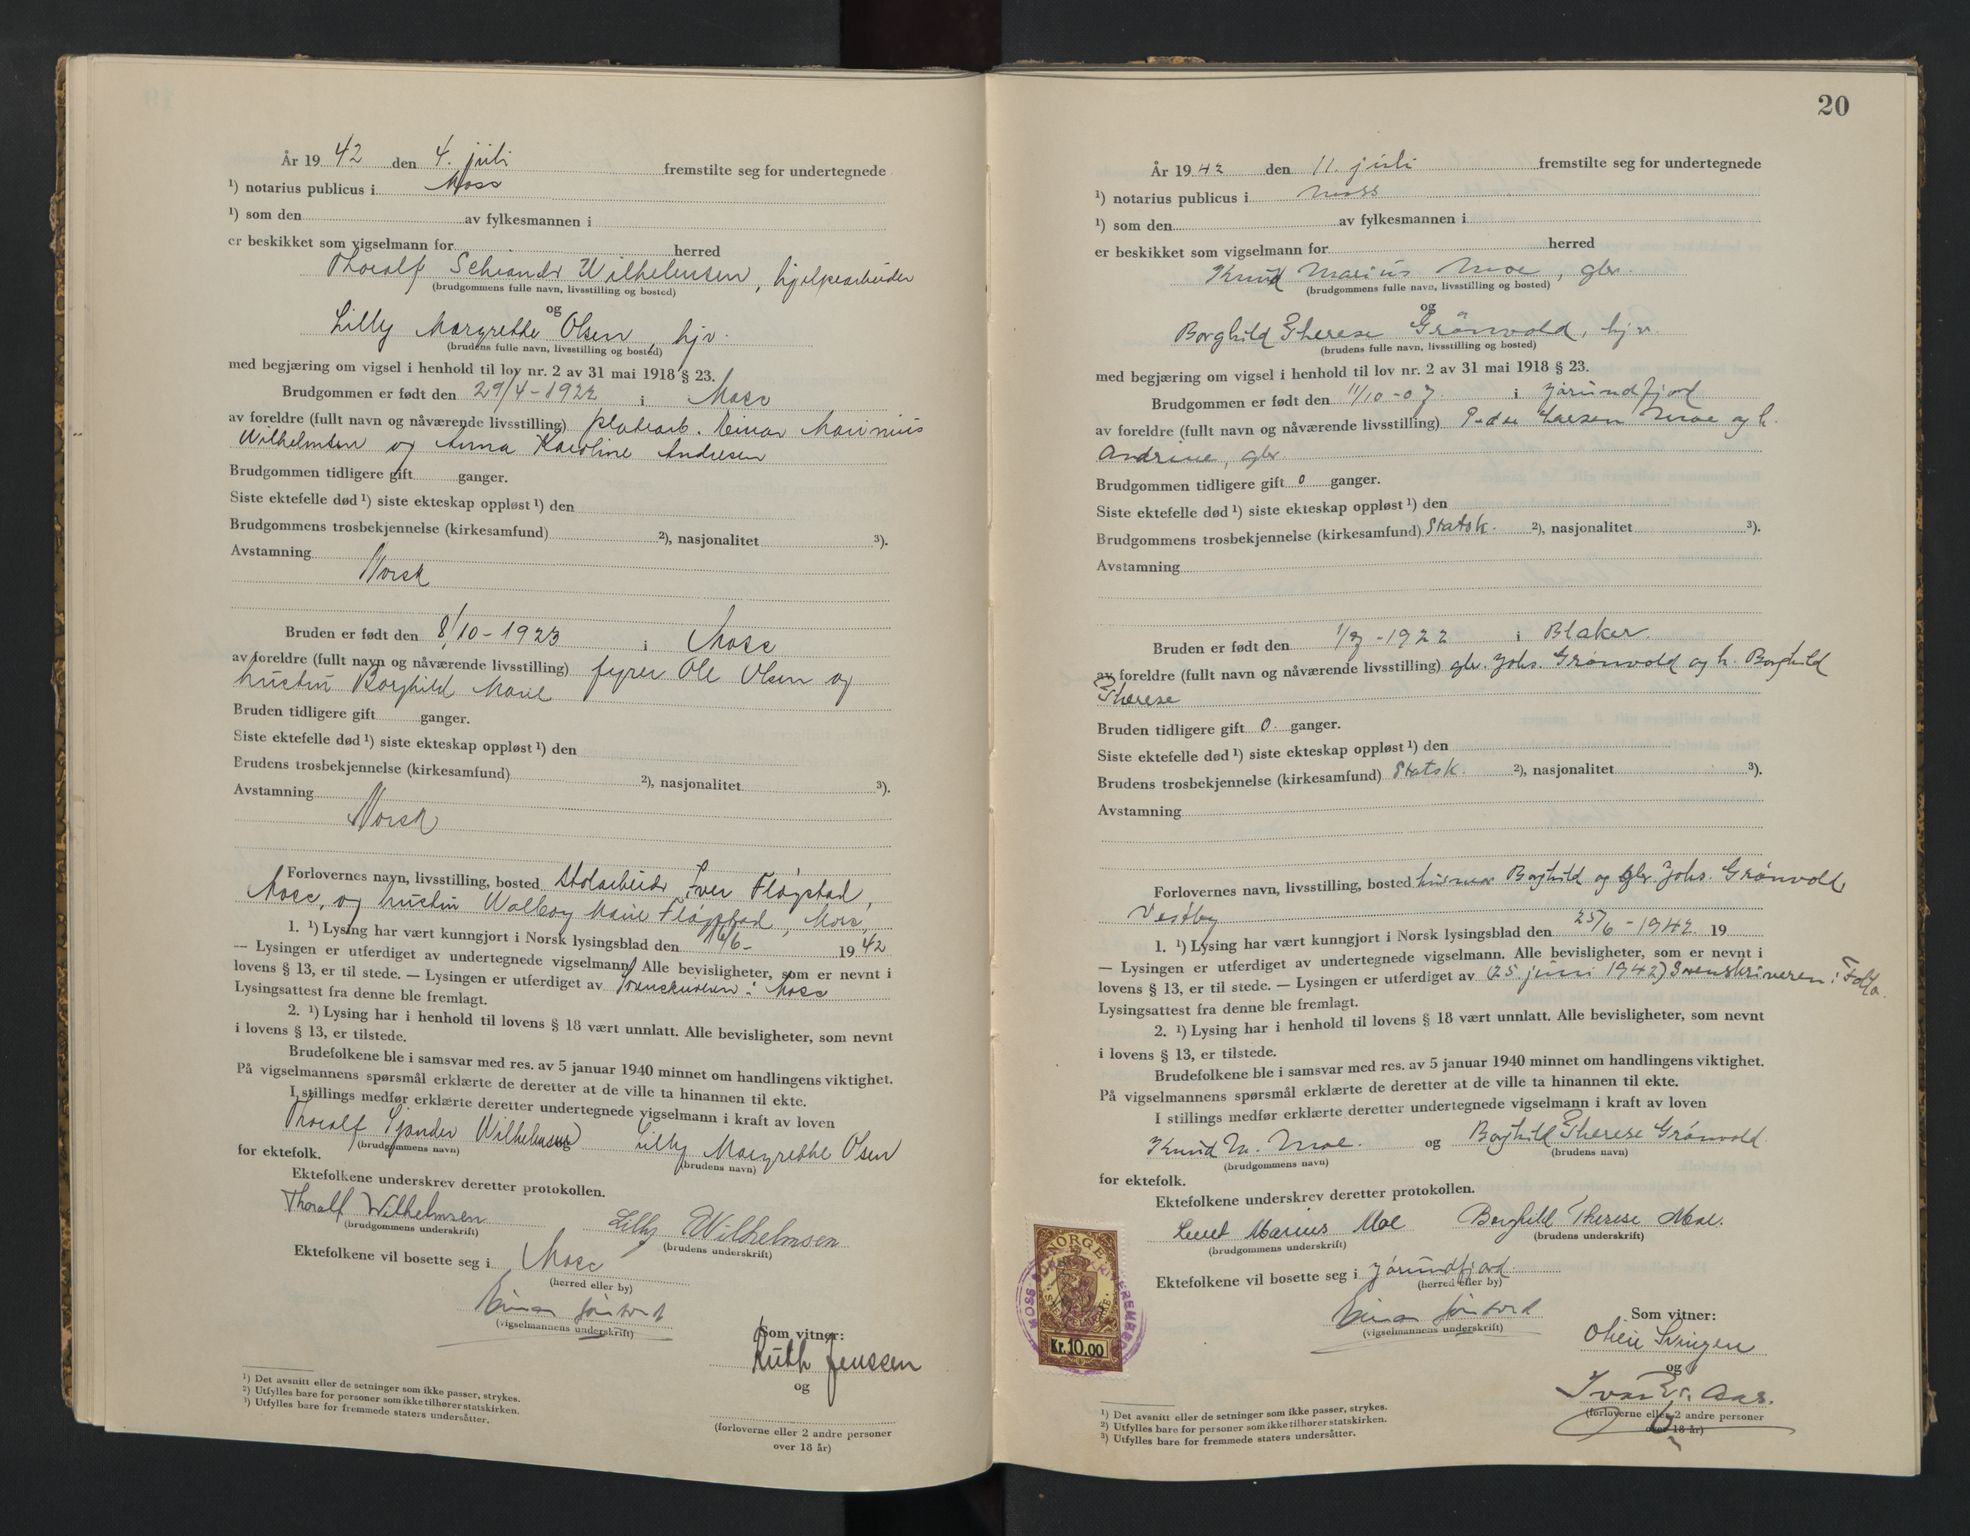 År 1942 den 4. juli fremstilte seg for undertegnede
¹) notarius publicus i Moss
¹) som den av fylkesmannen i
er beskikket som vigselmann for herred
Thoralf Wilhelmsen, hjelpearbeider
(brudgommens fulle navn, livsstilling og bosted)
og
Lilly Margrethe Olsen, hjv.
(brudens fulle navn, livsstilling og bosted)
med begjæring om vigsel i henhold til lov nr. 2 av 31 mai 1918 § 23.
Brudgommen er født den 29/4-1922 i Moss
av foreldre (fullt navn og nåværende livsstilling) platearb. Einar Marinius
Wilhelmsen og Anna Karoline Andresen
Brudgommen tidligere gift ganger.
Siste ektefelle død ¹) siste ekteskap oppløst ¹) den
Brudgommens trosbekjennelse (kirkesamfund) ²), nasjonalitet ³).
Avstamning
Norsk
Bruden er født den 8/10-1923 i Moss
av foreldre (fullt navn og nåværende livsstilling) fyrer Ole Olsen og
hustru Borghild Marie
Bruden tidligere gift ganger.
Siste ektefelle død ¹) siste ekteskap oppløst ¹) den
Brudens trosbekjennelse (kirkesamfund) ²), nasjonalitet ³).
Avstamning
Norsk
Forlovernes navn, livsstilling, bosted Iver Fløgstad,
Moss, og hustru Walborg Marie Fløgstad, Moss,
1. ¹) Lysing har vært kunngjort i Norsk lysingsblad den 16/6- 1942
— Lysingen er utferdiget av undertegnede vigselmann. Alle bevisligheter, som er nevnt i
lovens § 13, er til stede. — Lysingen er utferdiget av Sorenskriveren i Moss
Lysingsattest fra denne ble fremlagt.
2. ¹) Lysing har i henhold til lovens § 18 vært unnlatt. Alle bevisligheter, som nevnt
i lovens § 13, er tilstede.
Brudefolkene ble i samsvar med res. av 5 januar 1940 minnet om handlingens viktighet.
På vigselmannens spørsmål erklærte de deretter at de ville ta hinannen til ekte.
I stillings medfør erklærte deretter undertegnede vigselmann i kraft av loven
Thoralf Sjander Wilhelmsen og Lilly Margrethe Olsen
(brudgommens navn) (brudens navn)
for ektefolk.
Ektefolkene underskrev deretter protokollen.
Thoralf Wilhelmsen Lilly Wilhelmsen
(brudgommens underskrift) (brudens underskrift)
Ektefolkene vil bosette seg i Moss
(herred eller by)
Einar
(vigselmannens underskrift)
Som vitner:
Ruth Jenssen
og
(forloverne eller 2 andre personer
over 18 år)
¹) Det avsnitt eller de setninger som ikke passer, strykes.
²) Utfylles bare for personer som ikke tilhører statskirken.
³) Utfylles bare for fremmede staters undersåtter.
20
År 1942 den 11. juli fremstilte seg for undertegnede
¹) notarius publicus i Moss
¹) som den av fylkesmannen i
er beskikket som vigselmann for herred
Knud Marius Moe, gbr.
(brudgommens fulle navn, livsstilling og bosted)
og
Borghild Therese Grönvold, hjv.
(brudens fulle navn, livsstilling og bosted)
med begjæring om vigsel i henhold til lov nr. 2 av 31 mai 1918 § 23.
Brudgommen er født den 11/10-07. i Jørundfjord
av foreldre (fullt navn og nåværende livsstilling) Peder Larsen Moe og h.
Andrine, gbr.
Brudgommen tidligere gift 0 ganger.
Siste ektefelle død ¹) siste ekteskap oppløst ¹) den
Brudgommens trosbekjennelse (kirkesamfund) Statsk. ²), nasjonalitet ³).
Avstamning
Bruden er født den 1/7-1922 i Blaker.
av foreldre (fullt navn og nåværende livsstilling) gbr. Johs. Grønvold og h. Borghild
Therese
Bruden tidligere gift 0. ganger.
Siste ektefelle død ¹) siste ekteskap oppløst ¹) den
Brudens trosbekjennelse (kirkesamfund) Statsk. ²), nasjonalitet ³).
Avstamning
Forlovernes navn, livsstilling, bosted husmor Borghild og gbr. Johs. Grønvold
Vestby
1. ¹) Lysing har vært kunngjort i Norsk lysingsblad den 25/6-1942. 19
— Lysingen er utferdiget av undertegnede vigselmann. Alle bevisligheter, som er nevnt i
lovens § 13, er til stede. — Lysingen er utferdiget av (25. juni 1942) Sorenskriveren i Follo.
Lysingsattest fra denne ble fremlagt.
2. ¹) Lysing har i henhold til lovens § 18 vært unnlatt. Alle bevisligheter, som nevnt
i lovens § 13, er tilstede.
Brudefolkene ble i samsvar med res. av 5 januar 1940 minnet om handlingens viktighet.
På vigselmannens spørsmål erklærte de deretter at de ville ta hinannen til ekte.
I stillings medfør erklærte deretter undertegnede vigselmann i kraft av loven
Knud M. Moe. og Borghild Therese Grönvold.
(brudgommens navn) (brudens navn)
for ektefolk.
Ektefolkene underskrev deretter protokollen.
Marius Moe Borghild Therese Moe.
(brudgommens underskrift) (brudens underskrift)
Ektefolkene vil bosette seg i Jørundfjord.
(herred eller by)
Einar
(vigselmannens underskrift)
Som vitner:
Svingen
og
Ivar Aas.
(forloverne eller 2 andre personer
over 18 år)
NORGE
Kr. 10.00
¹) Det avsnitt eller de setninger som ikke passer, strykes.
²) Utfylles bare for personer som ikke tilhører statskirken.
³) Utfylles bare for fremmede staters undersåtter.